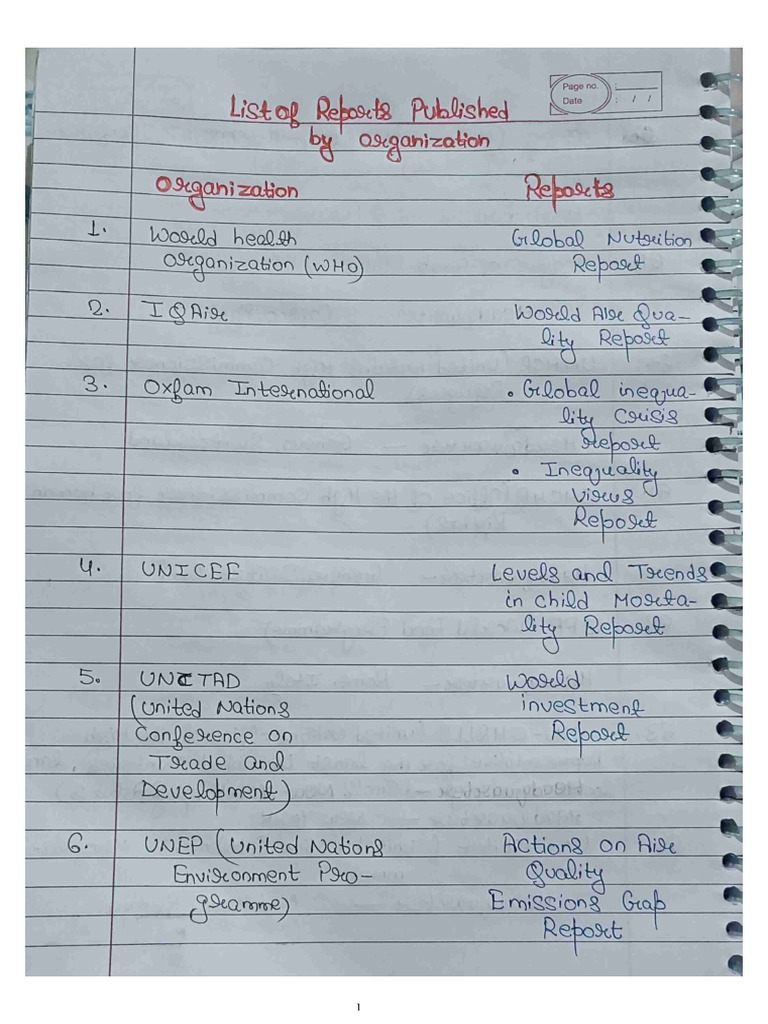 Page no. :
Date : / /
List of Reports Published
by Organization
Organization Reports
1. World health Global Nutrition
Organization (WHO) Report
2. IQAir World Air Qua-
lity Report
3. Oxfam International • Global inequa-
lity Crisis
Report
• Inequality
Virus
Report
4. UNICEF Levels and Trends
in Child Morta-
lity Report
5. UNCTAD World
(United Nations investment
Conference on Report
Trade and
Development)
6. UNEP (United Nations Actions on Air
Environment Pro- Quality
gramme) Emissions Gap
Report
1